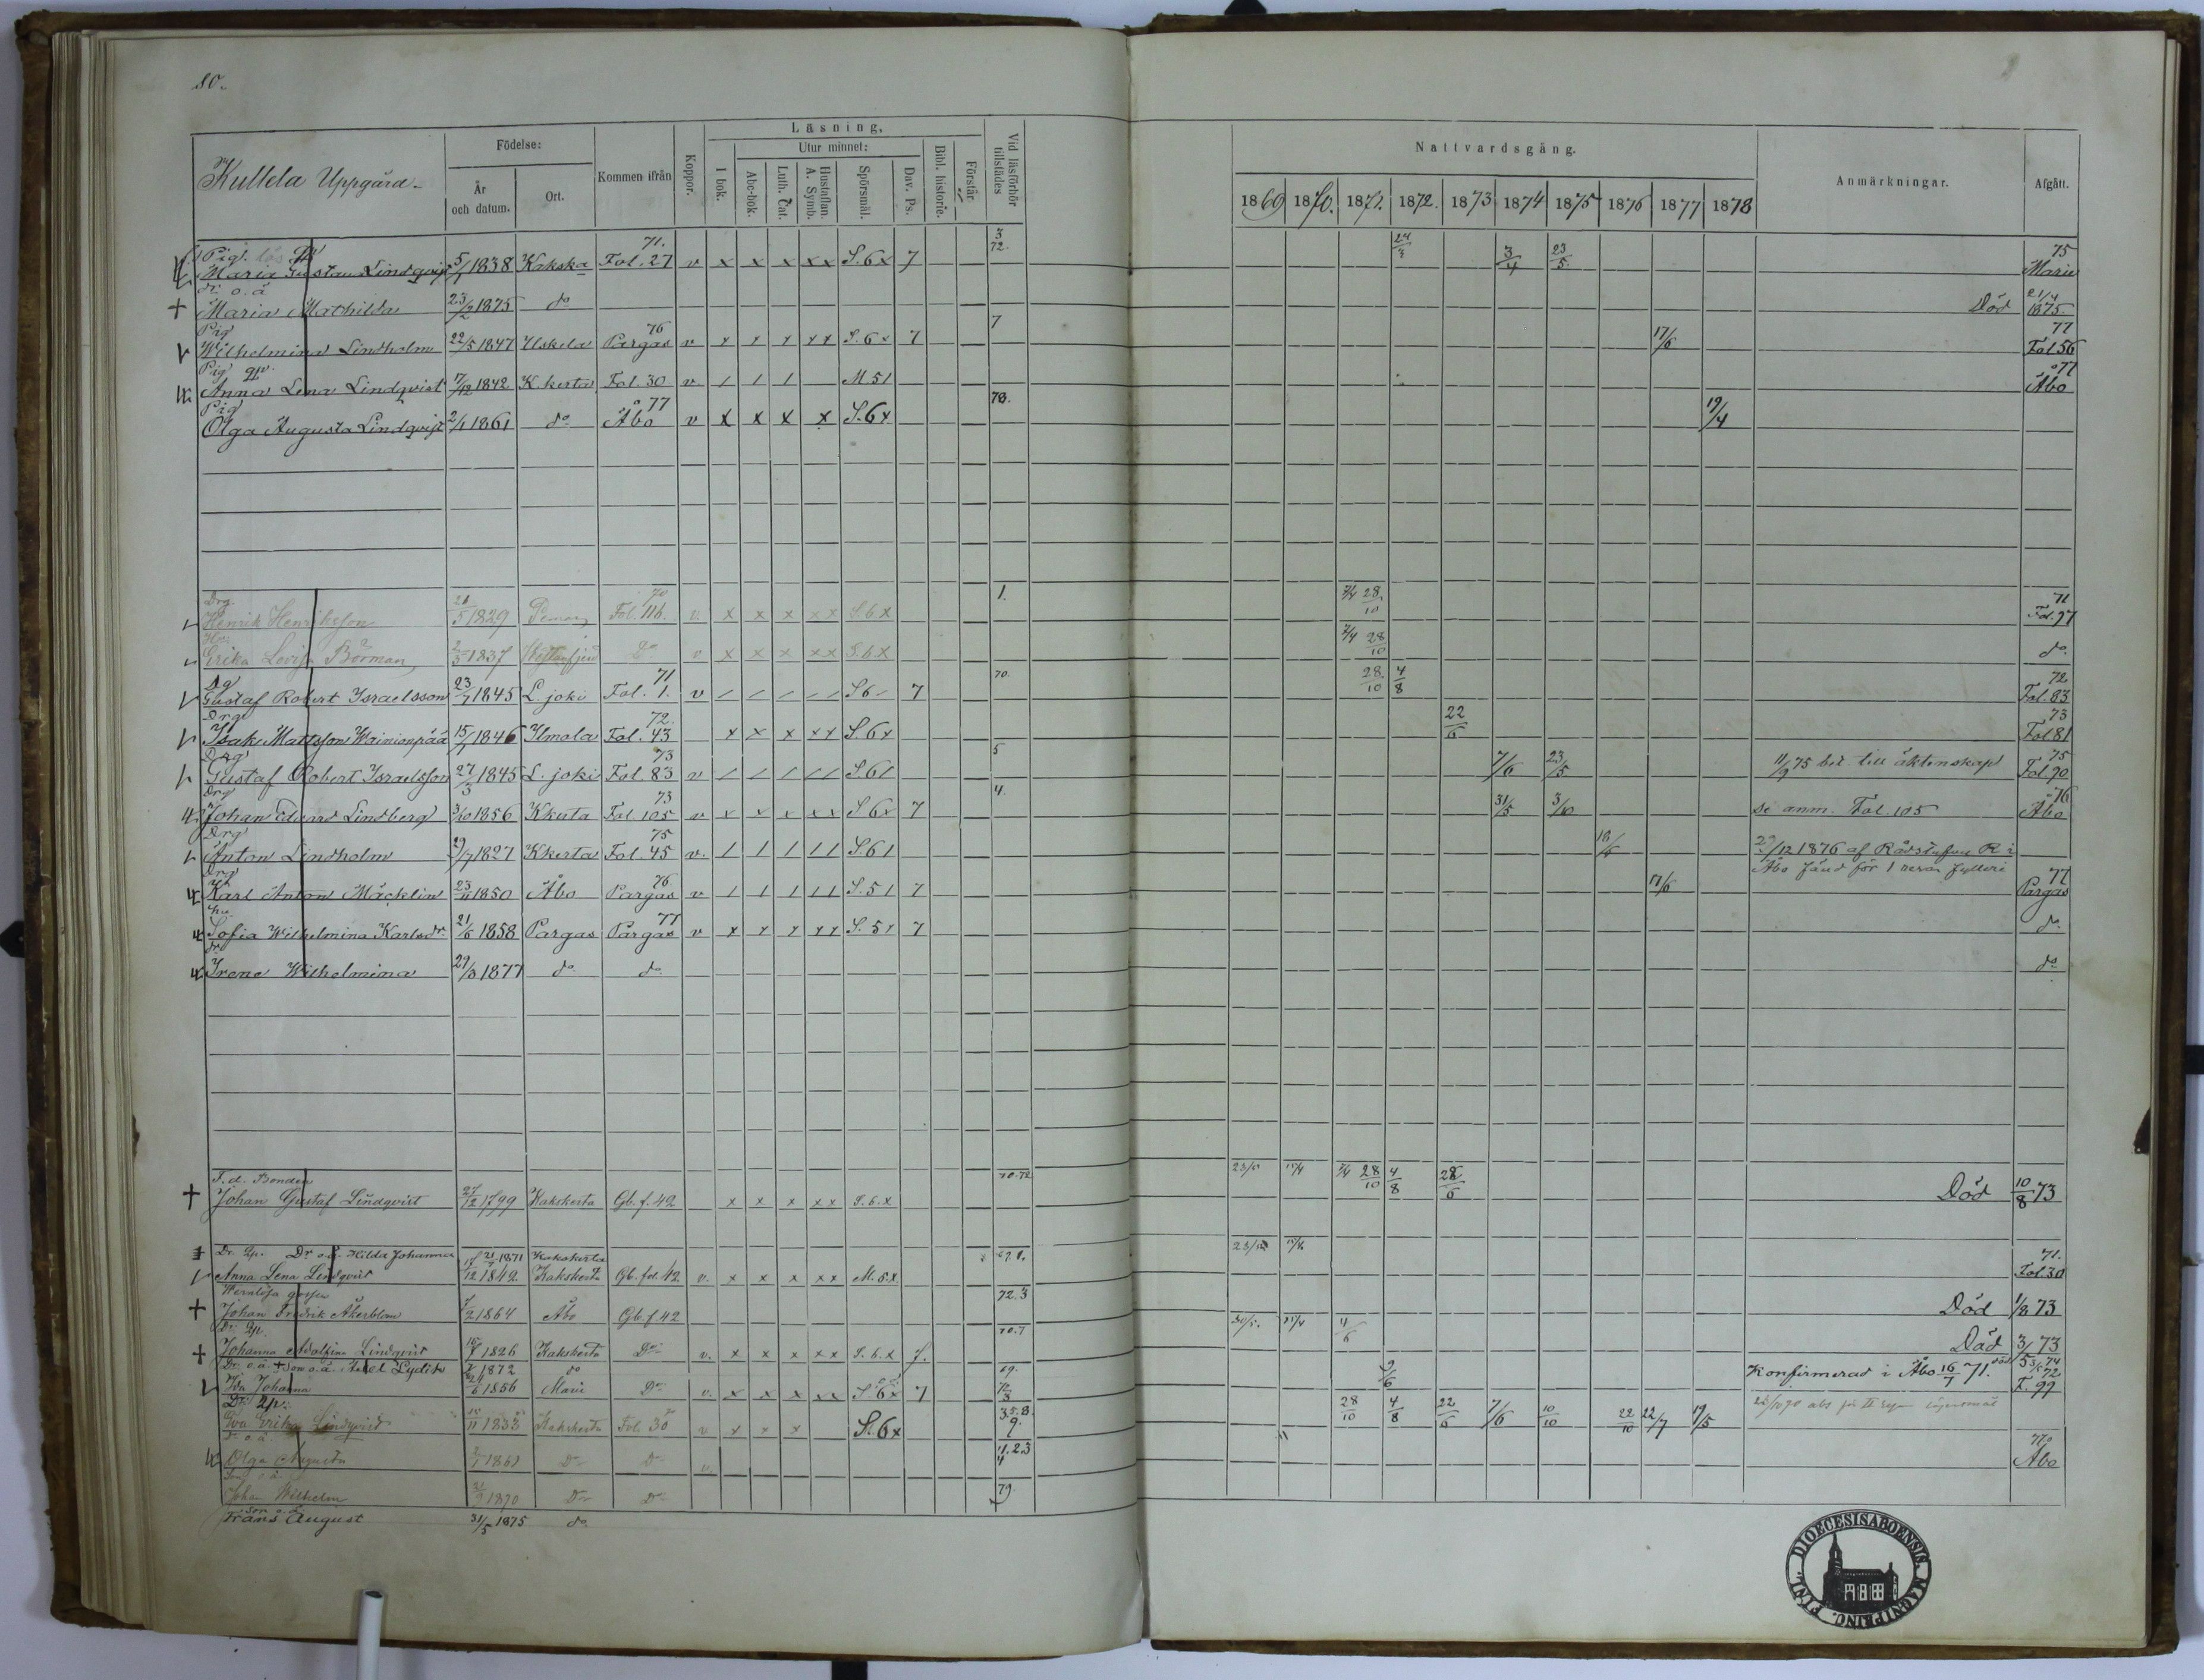 80.
Kullela Uppgård.
Födelse:
År och datum.
Ort.
Kommen ifrån
Koppor.
Läsning,
I bok.
Utur minnet:
Abc-bok.
Luth. Cat.
Hustaflan. A. Symb.
Spörsmål.
Dav. Ps.
Bibl. historie.
Förstår
Vid läsförhör tillstädes
Nattvardsgång.
1869 1870. 1871. 1872. 1873 1874 1875 1876 1877 1878
Anmärkningar.
Afgått.
Pig. Maria Gustava Lindqvist 5/1 1838 Kakska 71. Fol. 27 v x x x x x S. 6 x 7 3 72. 24/3 3/4 23/5. 75 Marie
dr o. ä
+ Maria Mathilda 23/2 1875 do Död 21/4 1875.
Pig Wilhelmina Lindholm 22/5 1847 Uskela 76 Pargas v x x x x x S. 6 x 7 7 17/6 77 Fol 56
Pig Anna Lena Lindqvist 17/12 1842 K.kerta Fol. 30 v / / / M 5 / 77 Åbo
Pig Olga Augusta Lindqvist 2/1 1861 do 77 Åbo v x x x x S. 6 x 78. 19/4
Drg. Henrik Henriksson 21/5 1829 Pemar 70 Fol. 116. v. x x x x x S. 6. x 1. 2/4 28/10 71 Fol. 97
Hu. Erika Lovisa Börman 2/3 1837 Do v x x x x x S. 6. x 2/4 28/10 do
Dg Gustaf Robert Israelsson 23/7 1845 L. joki 71 Fol. 1. v / / / / / S 6 / 7 70. 28/10 4/8 72 Fol. 83
Drg Isak Mattsson Wainionpää 15/1 1846 Ilmola 72. Fol. 43 x x x x x S. 6 x 22/6 73 Fol 81
Drg Gustaf Robert Israelsson 27/3 1845 L. joki 73 Fol 83 v / / / / / S. 6 / 5 7/6 23/5 11/9 75 bet. till äktenskap 75 Fol. 90
Drg Johan Edvard Lindberg 3/10 1856 Kkerta 73 Fol. 105 v x x x x x S. 6 x 7 4. 31/5 3/10 Se anm. Fol. 105 76 Åbo
Drg Anton Lindholm 29/7 1827 Kkerta 75 Fol. 45 v. / / / / / S. 6 / 18/6 29/12 1876 af Rådstufvu R i
Åbo för 1 resan fylleri
Drg Karl Anton Mäcklin 23/11 1850 Åbo 76 Pargas v / / / / / S. 5 / 7 17/6 77 Pargas
hu Sofia Wilhelmina Karlsdr. 21/6 1858 Pargas 77 Pargas v x x x x x S. 5 x 7 do
dr Irene Wilhelmina 29/3 1877 do do do
F. d. Bonden
+ Johan Gustaf Lindqvist 27/12 1799 Kakskerta Gb. f. 42 x x x x x S. 6. x 70.72 23/5 15/4 2/4 28/10 4/8 22/6 Död 10/8 73
Dr. Qv. Dr o.ä. Hilda Johanna 21/7 1871 Kakskerta
Anna Lena Lindqvist 17/12 1842 Kakskerta Gb. fol. 42 v. x x x x x M. 5 x 71. Fol. 30
Wärnlösa gossen
+ Johan Fredrik Åkerblom 1864 Åbo Gb. f. 42 72. 3 Död 1/8 73
Dr. Qv.
+ Johanna Adolfina Lindqvist 1826 Kakskerta Do v. x x x x x S. 6. x 7. 70. 7 4/6 Död 3/ 73
Dr. o.ä. + Son o.ä. Axel Lydik 1872 do
Ida Johanna 1856 Marie Do v. x x x x x S. 6 x 7 9/6 Konfirmerad i Åbo 16/7 71. 72 F. 99
Dr. Qv.
Eva Erika Lindqvist 15/11 1833 Kakskerta Fol. 30 v x x x St. 6 x 28/10 4/8 22/6 7/6 10/10 22/10 22/7 19/5
Dr o.ä.
Olga Augusta 2/1 1861 Do Do v. 77 Åbo
Son o.ä.
Johan Wilhelm 1870 Do Do 79
Son o. ä.
Frans August 31/5 1875 do
DIOECESIS ABOENSIS. MAGNI PRINC. FINL.